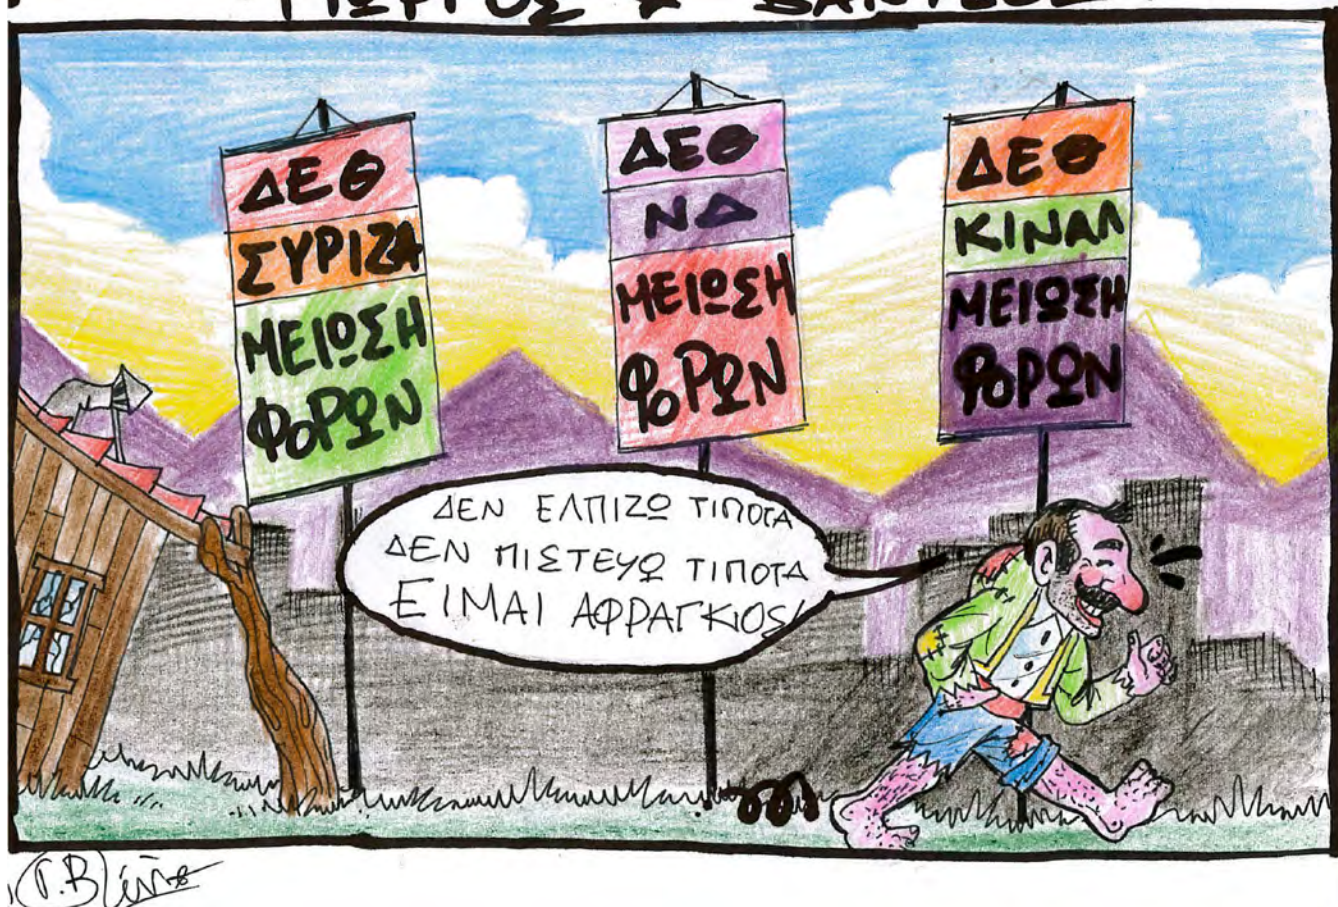 ΔΕΘ
ΣΥΡΙΖΑ
ΜΕΙΩΣΗ
ΦΟΡΩΝ
ΔΕΘ
ΝΔ
ΜΕΙΩΣΗ
ΦΟΡΩΝ
ΔΕΘ
ΚΙΝΑΛ
ΜΕΙΩΣΗ
ΦΟΡΩΝ
ΔΕΝ ΕΛΠΙΖΩ ΤΙΠΟΤΑ
ΔΕΝ ΠΙΣΤΕΥΩ ΤΙΠΟΤΑ
ΕΙΜΑΙ ΑΦΡΑΓΚΙΟS!